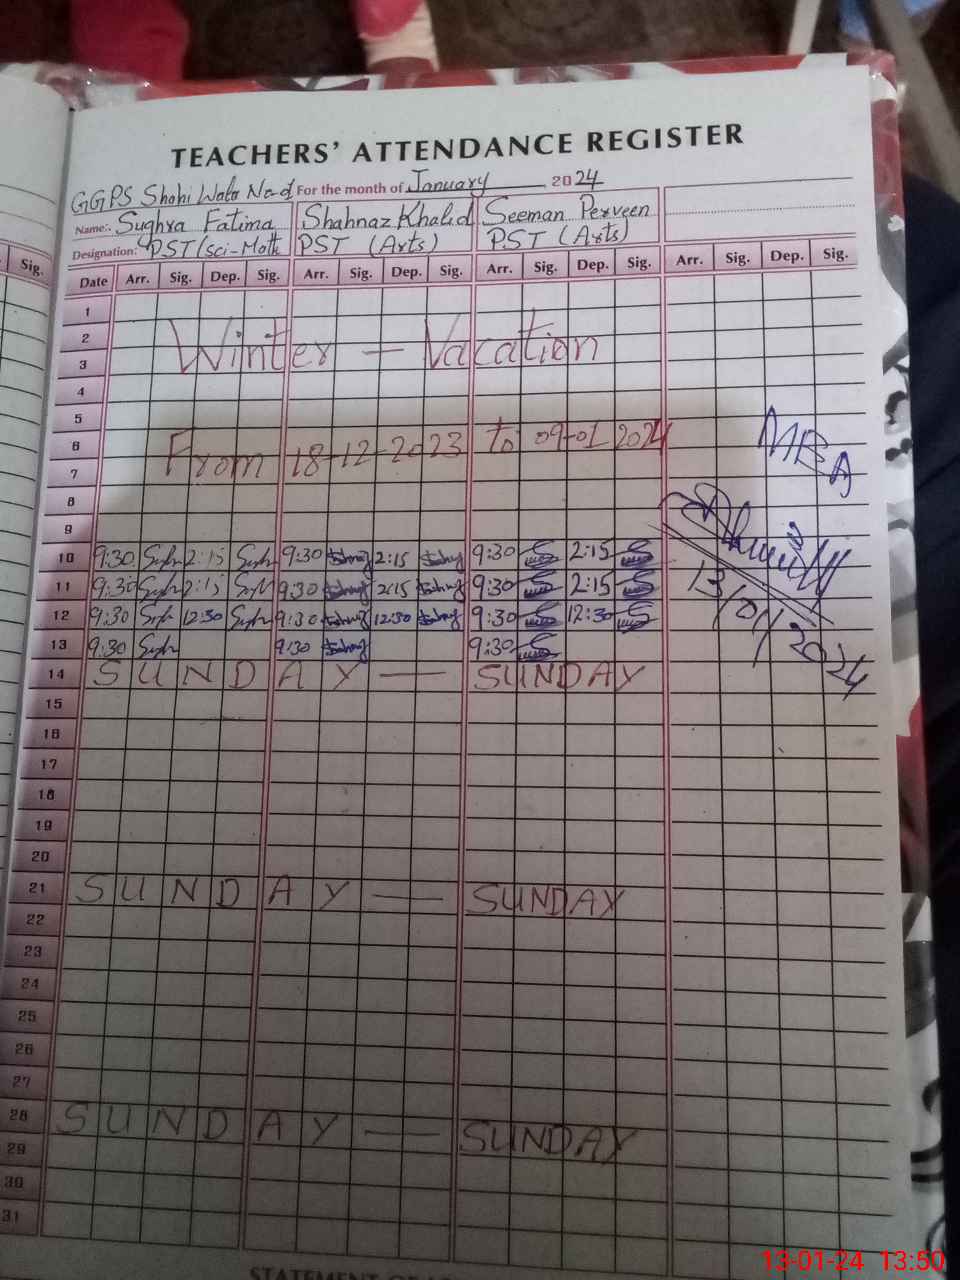 TEACHERS' ATTENDANCE REGISTER
GGPS Shahi Wala No-d For the month of January 2024
Name:. Sughra Fatima Shahnaz Khalid Seeman Perveen
Designation: PST (Sci-Math PST (Arts) PST (Arts)
Sig. Date Arr. Sig. Dep. Sig. Arr. Sig. Dep. Sig. Arr. Sig. Dep. Sig. Arr. Sig. Dep. Sig.
1
2
Winter — Vacation
3
4
5
6
From 18-12-2023 to 09-01 2024
MEA
7
8
9
10 9:30 2:15 9:30 2:15 9:30 2:15
11 9:30 2:15 9:30 2:15 9:30 2:15
12 9:30 12:30 9:30 12:30 9:30 12:30
13 9:30 9:30 9:30
13/01/2024
14 SUNDAY — SUNDAY
15
16
17
18
19
20
21 SUNDAY — SUNDAY
22
23
24
25
26
27
28 SUNDAY — SUNDAY
29
30
31
STATEMENT OF
13-01-24 13:50